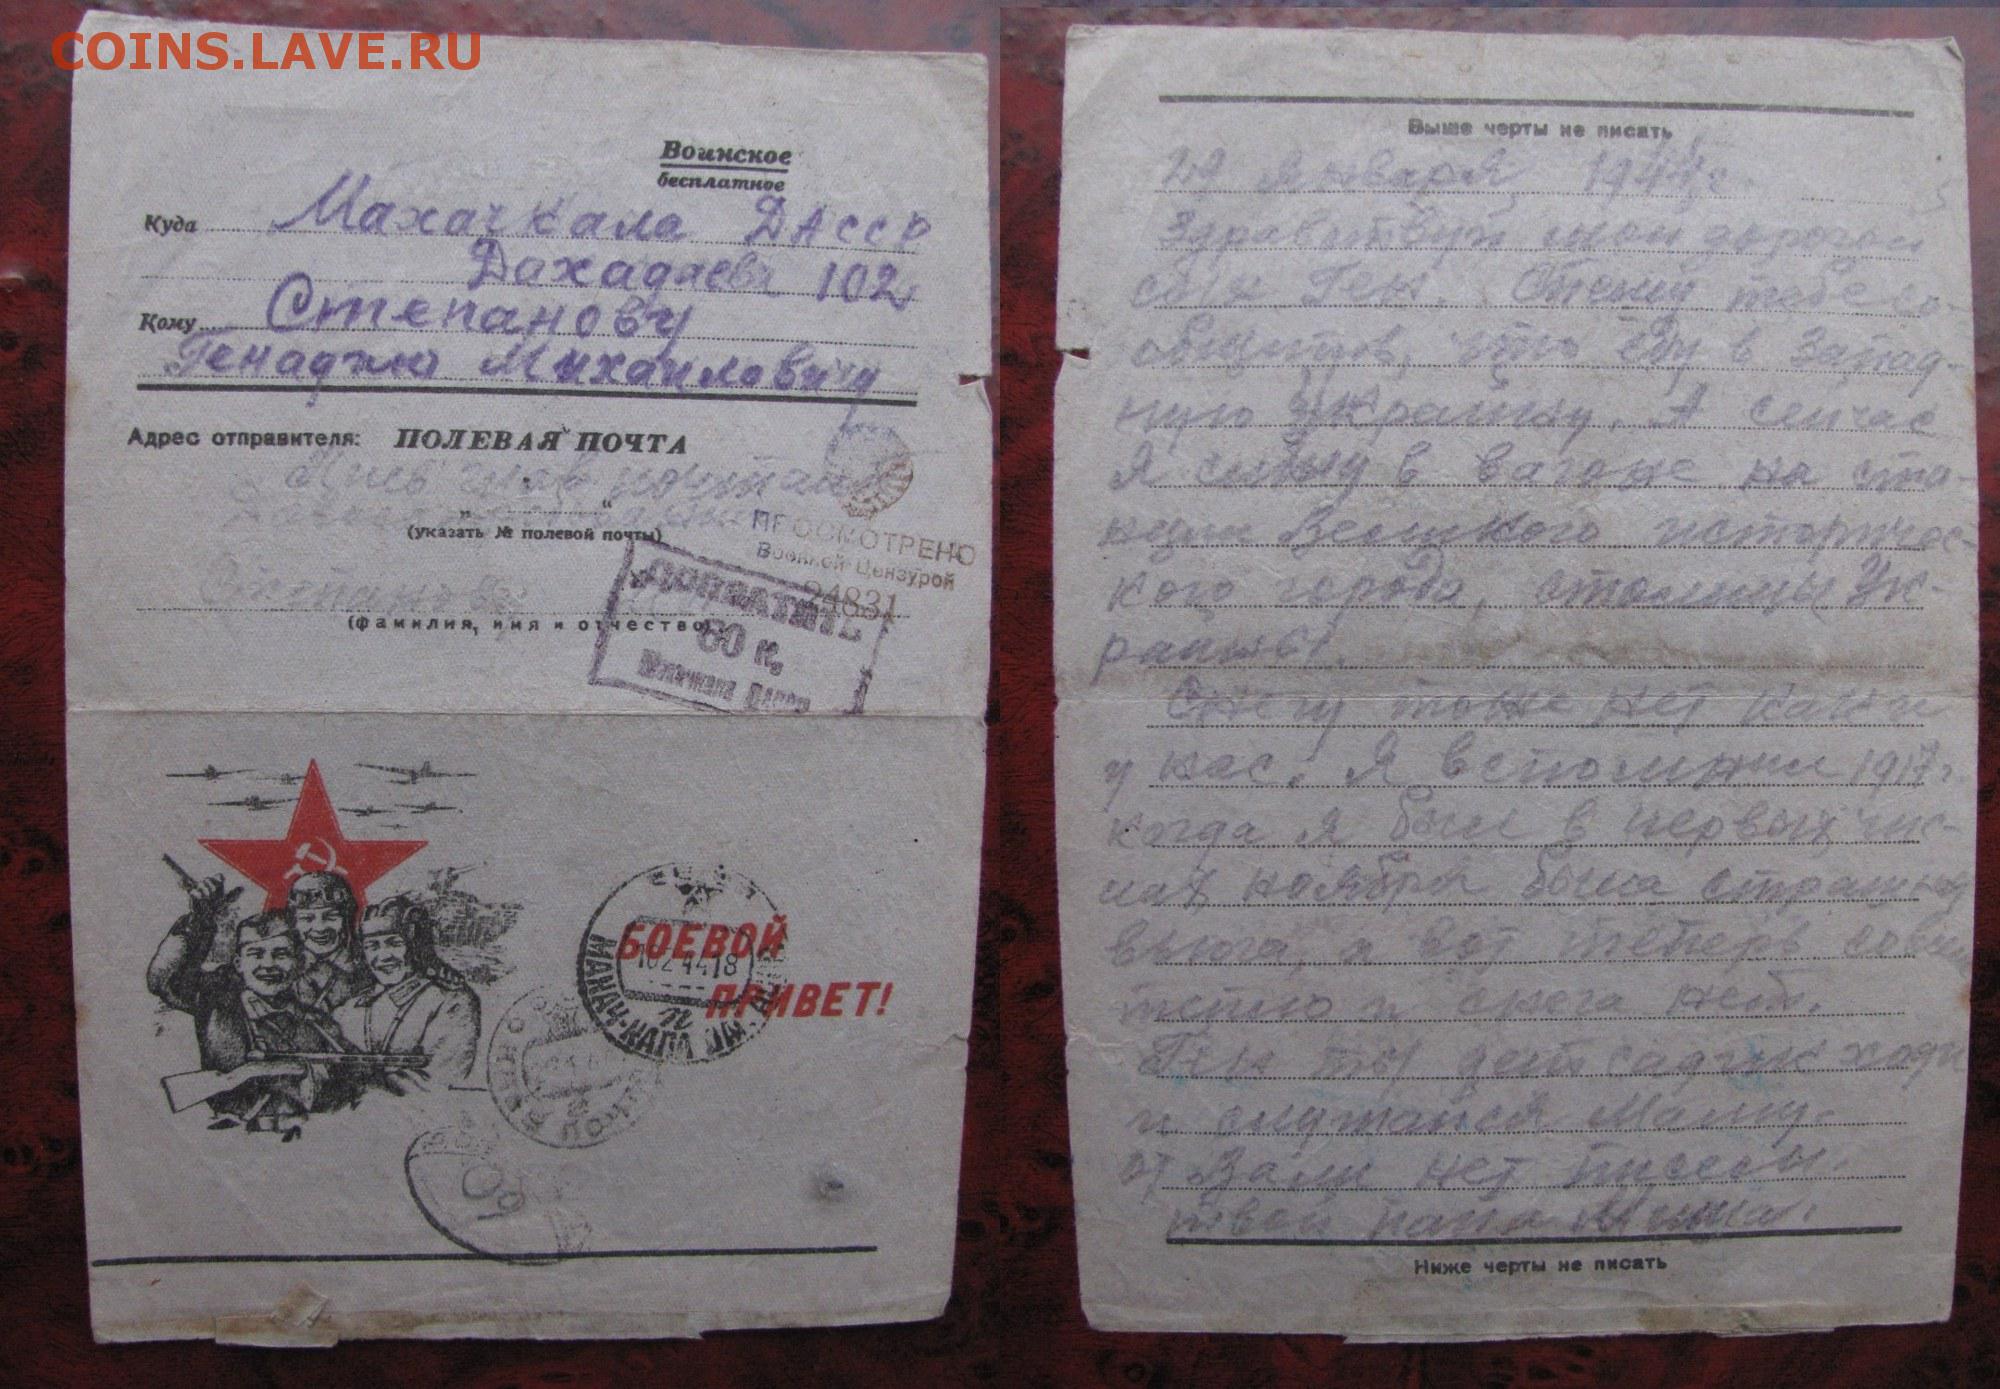 COINS.LAVE.RU
Воинское
бесплатное
Куда Махачкала ДАССР
Дахадаева 102
Кому Степанову
Генаджю Михаиловичу
Адрес отправителя: ПОЛЕВАЯ ПОЧТА
„ “
(указать № полевой почты)
ПРОСМОТРЕНО
Военной Цензурой
24831
Степанов
(фамилия, имя и отчество)
ДОПЛАТИТЬ
60 к.
БОЕВОЙ
ПРИВЕТ!
МАХАЧ-КАЛА
10 2 44 18
ПОЧТА
60
Выше черты не писать
января 1944 г.
Здравствуй мой дорогой
сын Ген. Спешу тебе со-
общить, что еду в Запад-
ную Украйну. А сейчас
я сижу в вагоне на ста-
нции Великого историчес-
кого города, столицы Ук-
райны.
Снегу тоже нет как и
у нас. Я вспомнил 1917 г.
когда я был в первых чис-
лах ноября была страшная
вьюга, а вот теперь совсем
тепло и снега нет.
Ген ты дет садик ходи
и слушайся Маму.
от Вали нет писем.
твой папа Миша.
Ниже черты не писать